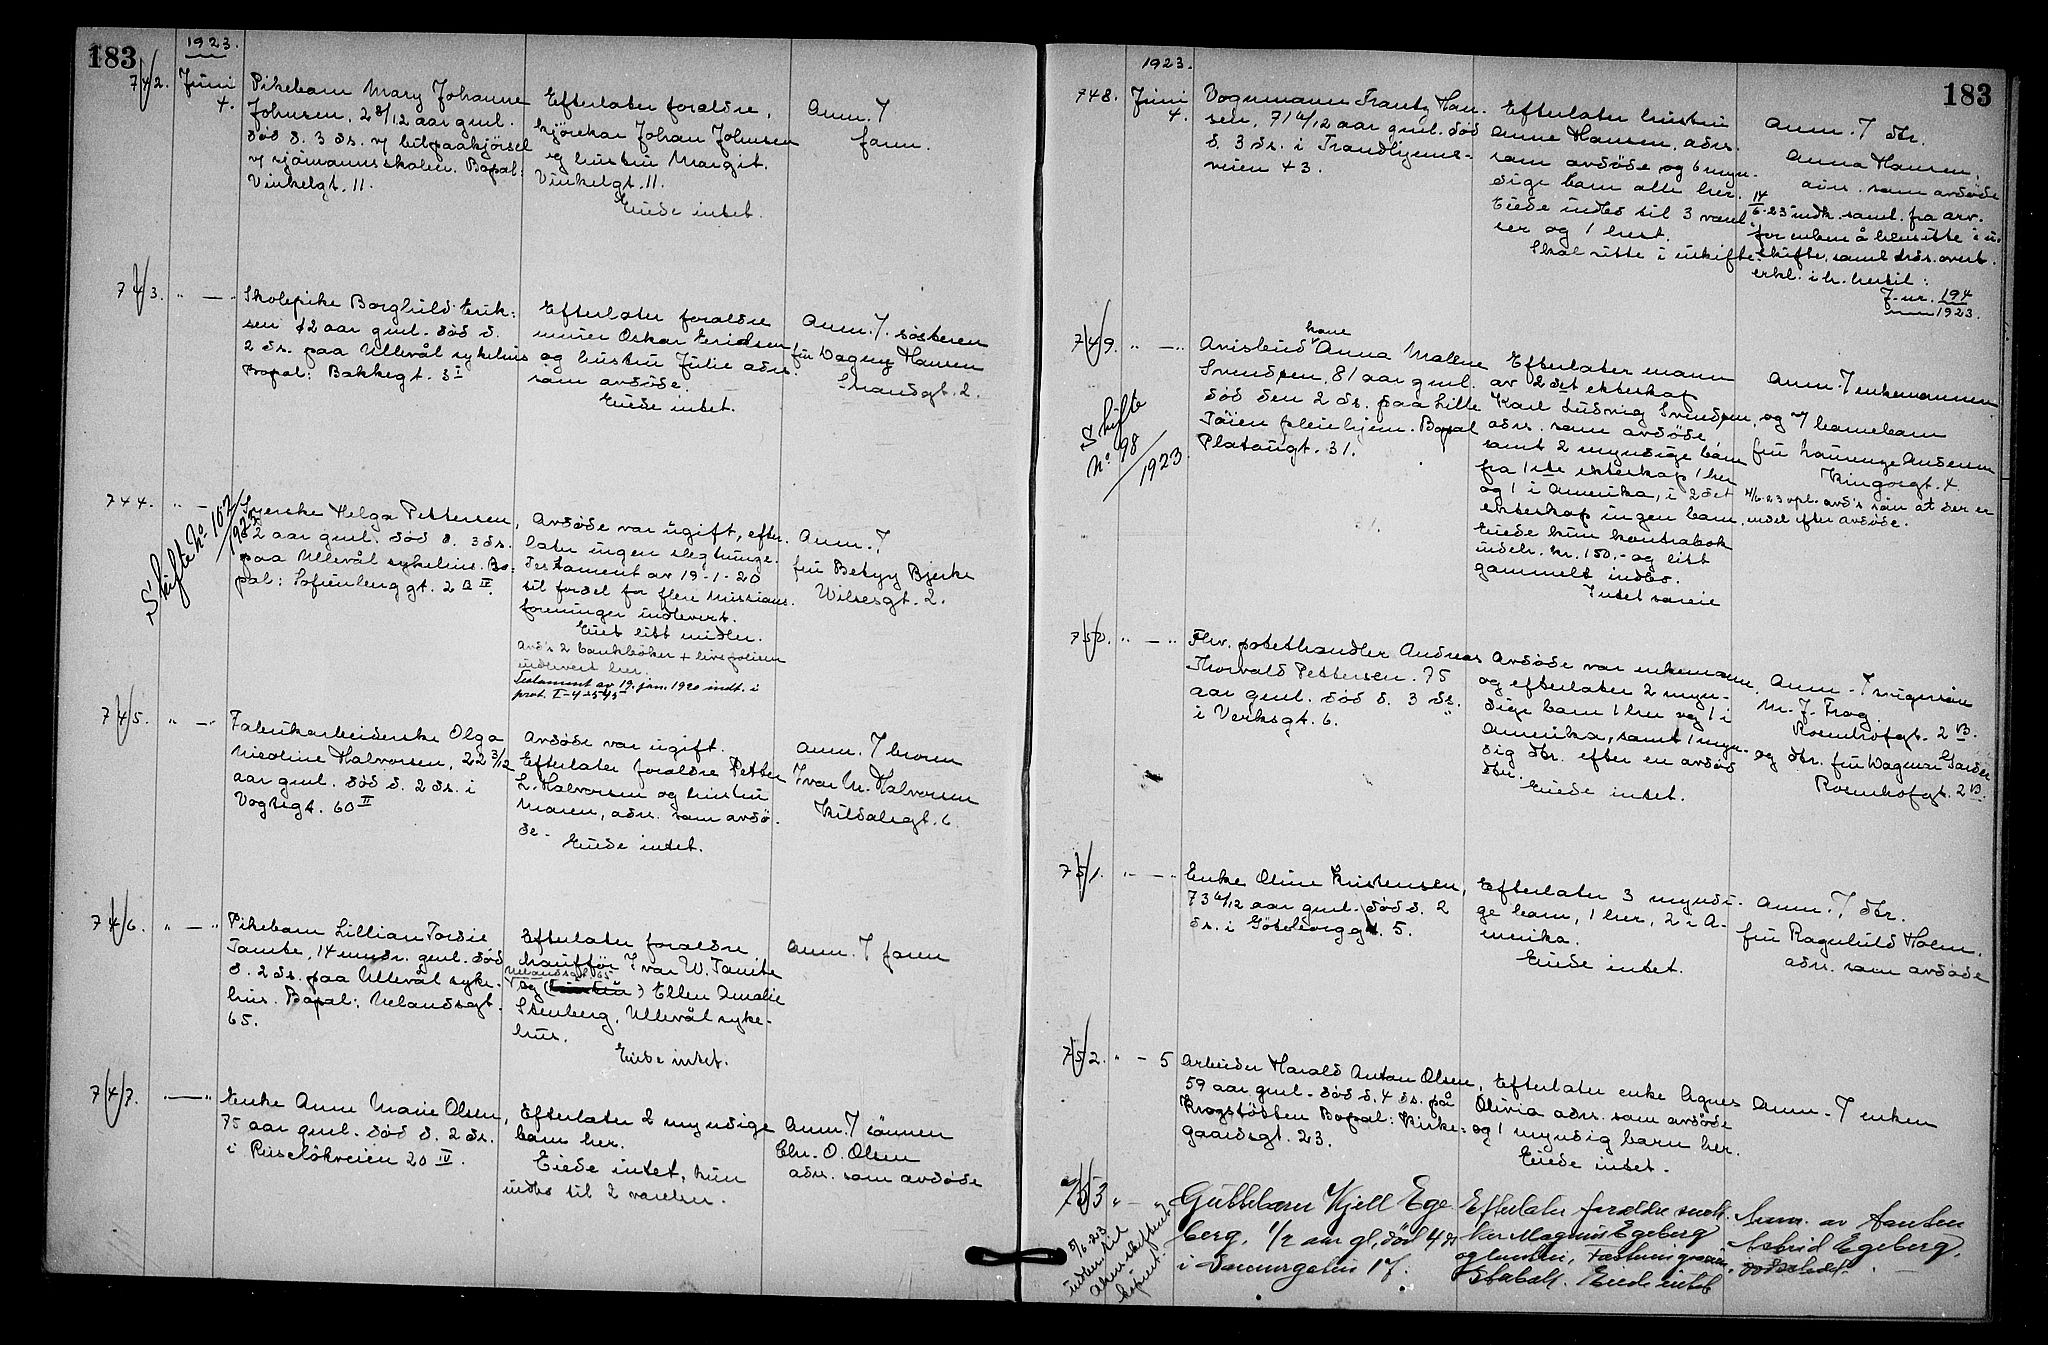 183
1923.
742. Juni 4.
Pikebarn Mary Johanne
Johnsen, 2 8/12 aar gml.
død d. 3 ds. v/ bilpaakjørsel
v/ sjømannsskolen. Bopæl:
Vinkelgt. 11.
Efterlater forældre,
kjørekar Johan Johnsen
og hustru Margit.
Vinkelgt. 11.
Eiede intet.
Anm. 7
faren.
743. " — "
Skolepike Borghild Erik-
sen 12 aar gml. død d.
2 ds. paa Ullevål sykehus
Bopæl: Bakkegt. 3 I
Efterlater forældre
murer Oskar Eriksen
og hustru Julie adr.
som avdøde.
Eiede intet.
Anm. 7. søsteren
fru Dagny Hansen
Strandgt. 2.
744. " —
Skifte No 102/1923
Helga Pettersen,
aar gml. død d. 3 ds.
paa Ullevål sykehus. Bo-
pæl: Sofienberggt. 2 B IV.
Avdøde var ugift, efter-
later ingen slegtninge.
Testament av 19-1-20
til fordel for flere missions-
foreninger indlevert.
Eiet litt midler.
Avd's 2 bankbøker + livspolisen
indlevert her.
Testament av 19. jan. 1920 indt. i
prot.
Anm. 7
fru Betsy Bjerke
Wilsesgt. 2.
745. " — "
Fabrikarbeiderske Olga
Nicoline Halvorsen, 22 3/12
aar gml. død d. 2 ds. i
Vogtsgt. 60 II
Avdøde var ugift.
Efterlater forældre Petter
L. Halvorsen og hustru
Maren, adr. som avdø-
de.
Eiede intet.
Anm. 7 broren
Ivar M. Halvorsen
Kildalsgt. 6.
746. " — "
Pikebarn Lillian Tordis
Tambe, 14 mndr. gml. død
d. 2 ds. paa Ullevål syke-
hus. Bopæl: Uelandsgt.
65.
Efterlater forældre
chauffør Ivar W. Tambe
Uelandsgt. 65
og (hustru) Ellen Amalie
Stenberg, Ullevål syke-
hus.
Eiede intet.
Anm. 7 faren
747. " — "
Enke Anne Marie Olsen,
75 aar gml. død d. 2 ds.
i Ruseløkveien 20 IV.
Efterlater 2 myndige
barn her.
Eiede intet, kun
indbo til 2 værelser.
Anm. 7 sønnen
Chr. O. Olsen
adr. som avdøde
183
1923.
748. Juni 4.
Vognmann Frantz Han-
sen, 71 6/12 aar gml. død
d. 3 ds. i Trondhjems-
veien 43.
Efterlater hustru
Anne Hansen, adr.
som avdøde og 6 myn-
dige barn alle her.
Eiede indbo til 3 værel-
ser og 1 hest.
Skal sitte i uskifte.
Anm. 7 dtr.
Anna Hansen,
adr. som avdøde
14/6-23 indk. saml. fra arv.
for enken å hensitte i u-
skifte, samt
erkl. i h. hertil:
J.nr. 194
1923.
749. " — "
Skifte No 98/1923
Avisbud kone Anna Malene
Svendsen, 81 aar gml.
død den 2 ds. paa Lille
Tøien pleiehjem. Bopæl
Platougt. 31.
Efterlater mann
av 2det ekteskap
Karl Ludvig Svendsen,
adr. som avdøde,
samt 2 myndige barn
fra 1ste ekteskap 1 her
og 1 i Amerika, i 2det
ekteskap ingen barn.
Eiede kun kontrabok
indeh. kr. 150.- og litt
gammelt indbo.
Intet særeie
Anm. 7 enkemannen
og 7 barnebarn
fru Laurenze Andersen
Kingosgt. 4.
4/6-23 opl. avd's søn at der er
intet efter avdøde.
750. " — "
Fhv. potethandler Andreas
Thorvald Pettersen. 75
aar gml. død d. 3 ds.
i Verksgt. 6.
Avdøde var enkemann
og efterlater 2 myn-
dige barn 1 her og 1 i
Amerika, samt 1 myn-
dig dtr. efter en avdød
dtr.
Eiede intet.
Anm. 7 svigersøn
M. J. Frog.
Rosenhofgt. 2 B.
og dtr. fru Dagmar Garder
Rosenhofgt. 2 B.
751. " — "
Enke Oline Kristensen,
73 6/12 aar gml. død d. 2
ds. i Göteborggt. 5.
Efterlater 3 myndi-
ge barn, 1 her, 2 i A-
merika.
Eiede intet.
Anm. 7 dtr.
fru Ragnhild Holm,
adr. som avdøde
752. " — 5
Arbeider Harald Anton Olsen,
59 aar gml. død d. 4 ds. på
Krogstøtten Bopæl: Kirke-
gaardsgt. 23.
Efterlater enke Agnes
Olivia adr. som avdøde
og 1 myndig barn her.
Eiede intet.
Anm. 7 enken
753 " — "
5/6-23
Guttebarn Kjell Ege-
berg. 1/2 aar gl. død 4 ds
i 17.
Efterlater forældre
Magnus Egeberg
og hustru,
Eiede intet
Anm. av tanten
Astrid Egeberg.